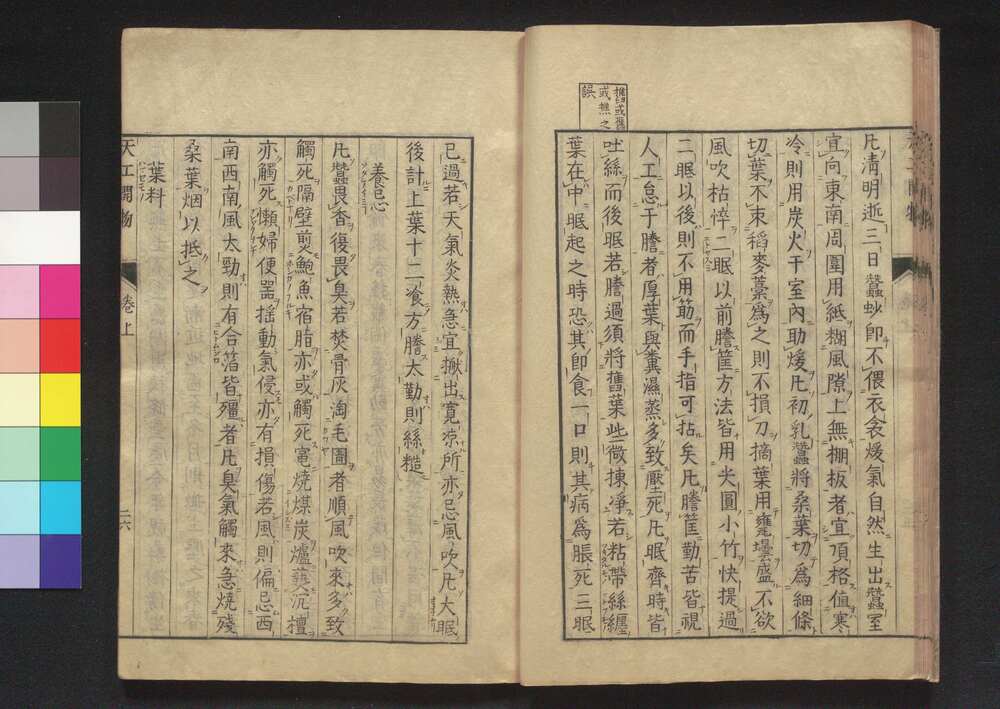 凡淸明逝三日蠶𧉮即不偎衣衾煖氣自然生出蠶室
宜向東南周圍用紙糊風隙上無棚板者宜頂格値寒
冷則用炭火于室內助煖凡初乳蠶將桑葉切爲細條
切葉不束稻麥藁爲之則不損刀摘葉用甕壜盛不欲
風吹枯悴二眠以前謄筐方法皆用尖圓小竹快提過
二眠以後則不用筯而手指可拈矣凡謄筐勤苦皆視
人工怠于謄者厚葉與糞濕蒸多致壓死凡眠齊時皆
吐絲而後眠若謄過須將舊葉些微揀凈若粘帶絲纏
葉在中眠起之時恐其即食一口則其病爲脹死三眠
已過若天氣炎熱急宜搬出寬凉所亦忌風吹凡大眠
後計上葉十二飡方謄太勤則絲糙
養忌
凡蠶畏香復畏臭若焚骨灰淘毛圊者順風吹來多致
觸死隔壁煎鮑魚宿脂亦或觸死竈燒煤炭爐爇沉檀
亦觸死懶婦便噐揺動氣侵亦有損傷若風則偏忌西
南西南風太勁則有合箔皆殭者凡臭氣觸來急燒殘
桑葉烟以抵之
葉料
天工開物
卷上
二六